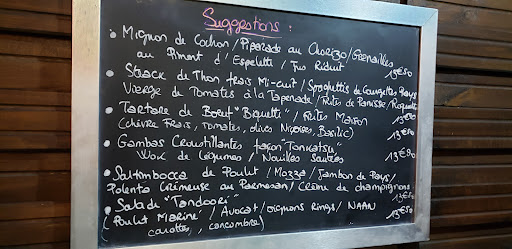 Suggestions :
• Mignon de Cochon / Piperade au Chorizo / Grenailles
au Piment d'Espelette / Jus Réduit 13€50
• Steack de Thon frais Mi-cuit / Spaghettis de Courgettes Pays
Vierge de Tomates à la Tapenade / Frites de Panisse / Roquette
• Tartare de Boeuf "Biquetti" / Frites Maison
(chèvre Frais, Tomates, olives Niçoises, Basilic)
• Gambas Croustillantes façon "Tonkatsu"
Wok de Légumes / Nouilles Sautées
• Saltimbocca de Poulet / Mozza / Jambon de Pays /
Polenta Crémeuse au Parmesan / Crème de champignons
• Salade "Tandoori"
(Poulet Mariné / Avocat / oignons rings / NAAN
carottes, , concombre) 13€50